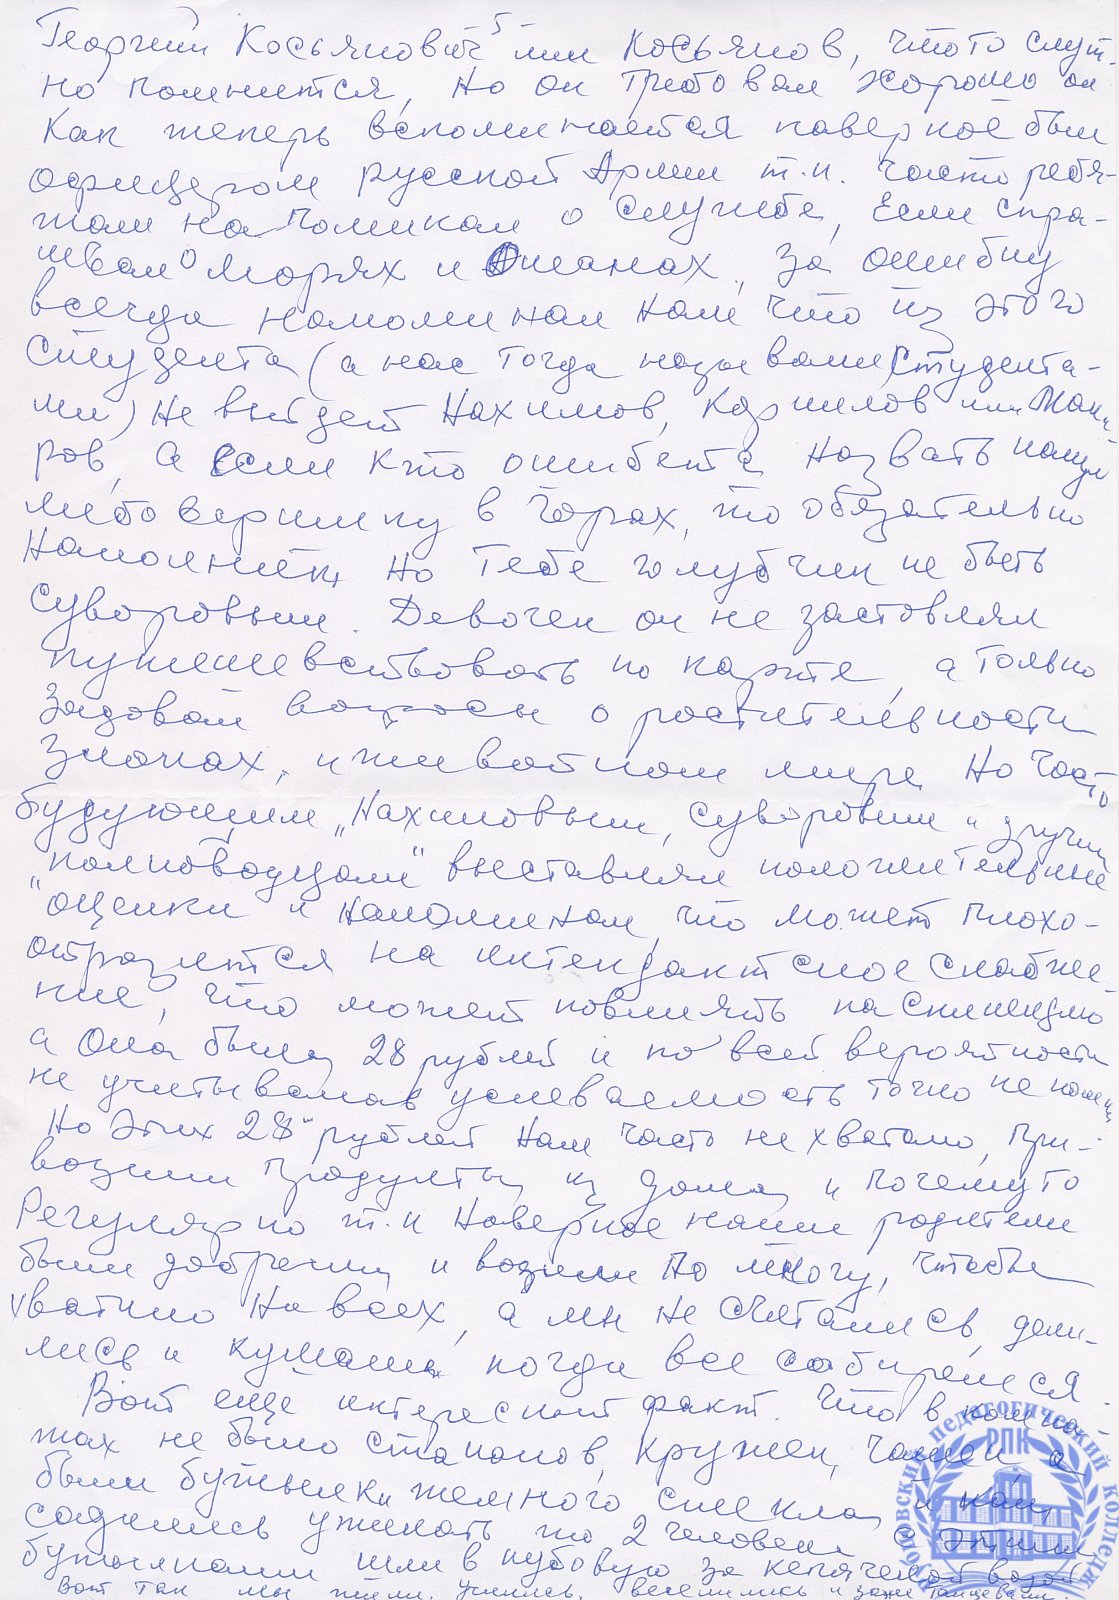 5
Георгий Косьянович или Косьянов, что то смут-
но помнится, Но он требовал хорошо он
Как теперь вспоминается наверное был
офицером русской Армии т.к. часто ребя-
там напоминал о службе, Если спра-
шивал о морях и Океанах, за ошибку
всегда напоминал нам что из этого
студента (а нас тогда называли студента-
ми) не выйдет Нахимов, Корнилов или Мака-
ров, а если кто ошибется назвать какую
либо вершину в горах, то обязательно
напомнит, но тебе голубчик не быть
Суворовым. Девочек он не застовлял
путешевствовать по карте, а только
задовал вопросы о растительности
злаках, и животном мире Но часто
будующим „Нахимовым, Суворовым и другим
полководцам" выставлял положительные
"оценки и напоминал, что может плохо-
отразится на интендантское снабже-
ние, что может повлиять на стипендию
а Она была 28 рублей и по всей вероятности
не учитывалась успеваемость точно не помню
Но Этих 28 рублей нам часто не хватало, при-
возили продукты из дома и почему то
Регулярно т.к Наверное наши родители
были добрыми и возили по многу, чтобы
хватило на всех, а мы не считались, дели-
лись и кушали когда все соберемся.
Вот ещё интересный факт. Что в комна-
тах не было стаканов, кружек, чашек, а
были бутылки темного стекла, и как
садились ужинать то 2 человека с этими
бутылками шли в кубовую за кипяченой водой
Вот так мы жили, учились, веселились и даже танцевали.
педагогический колледж
РПК